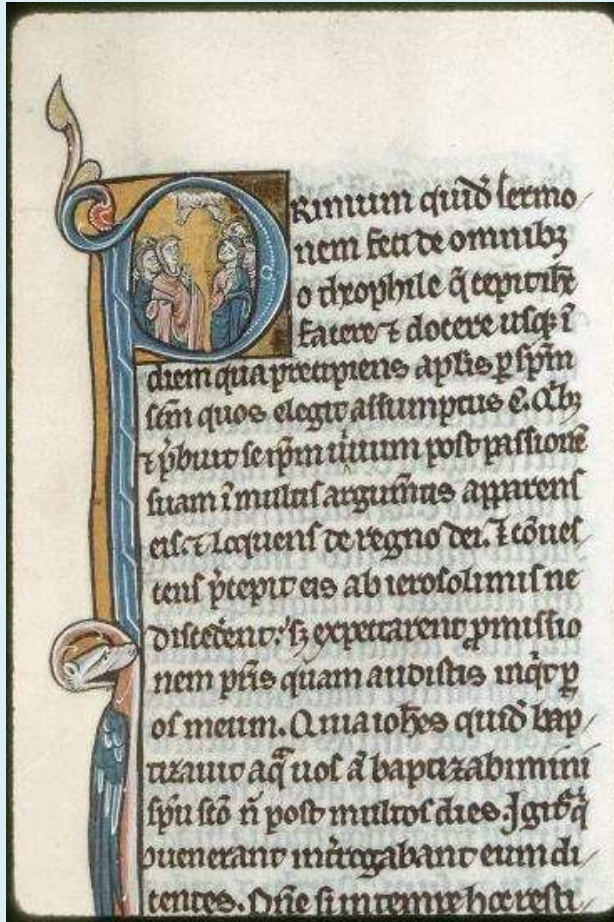 PRimum quid̄ sermo
nem feci de omnibꝫ
o theophile q̄ cepit ih̄c
facere ⁊ docere usqꝫ ī
diem qua precipiens apl̄is ꝑ sp̄m
sc̄m quos elegit assumptus ē. Q̇ibꝫ
⁊ p̄buit se ip̄m uiuum post passionē
suam ī multis argum̄tis apparens
eis. ⁊ loquens de regno dei. ⁊ cōues
cens p̄cepit eis ab ierosolimis ne
disceder̄ent: sꝫ expectarent ꝓmissio
nem pr̄is quam audistis inq̇t ꝑ
os meum. Quia ioh̄es quid̄ bap
tizauit aq̄ uos ā baptizabimini
sp̄u sc̄o n̄ post multos dies. Igit᷑ q̇
ꝯuenerant int̄rogabant eum di
centes. Dn̄e si in tempre hoc resti